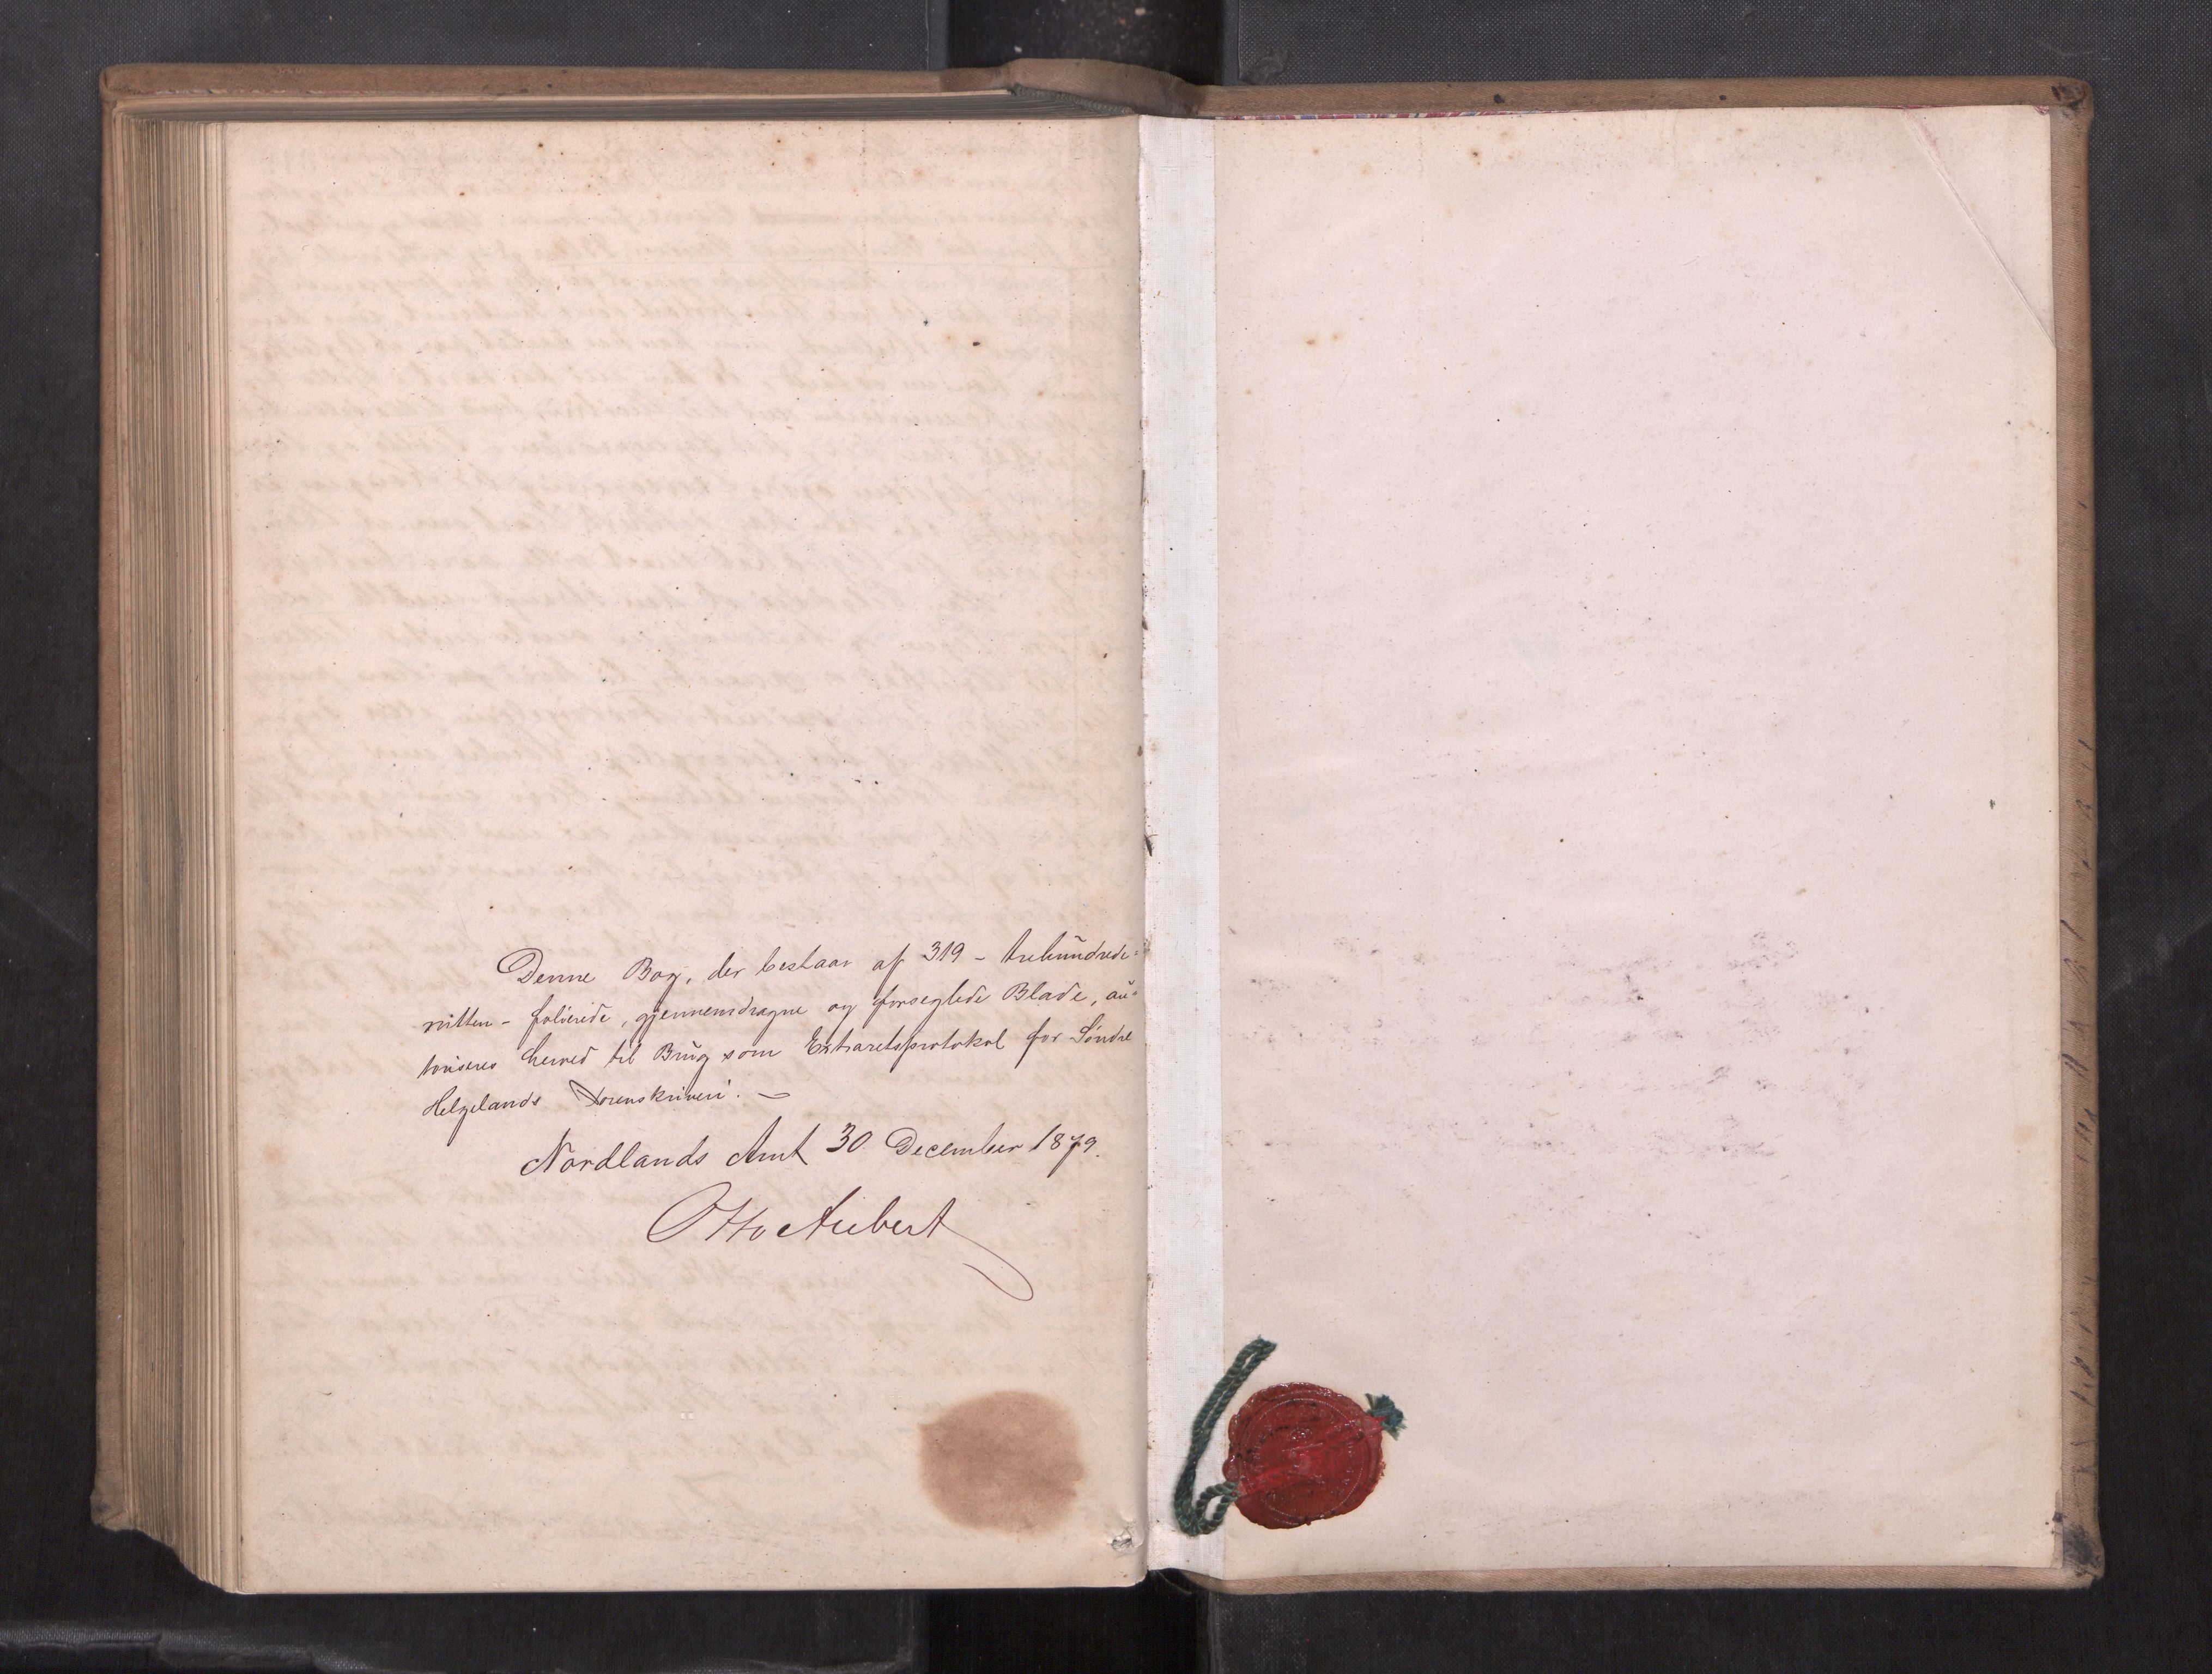 Denne Bog, der bestaar af 319 - trehundrede=
nitten - folierede, gjennemdragne og forseglede Blade, au=
toriseres herved til Brug som Extraretsprotokol for Søndre
Helgelands Sorenskriveri. —
Nordlands Amt 30 December 1879.
Otto Aubert